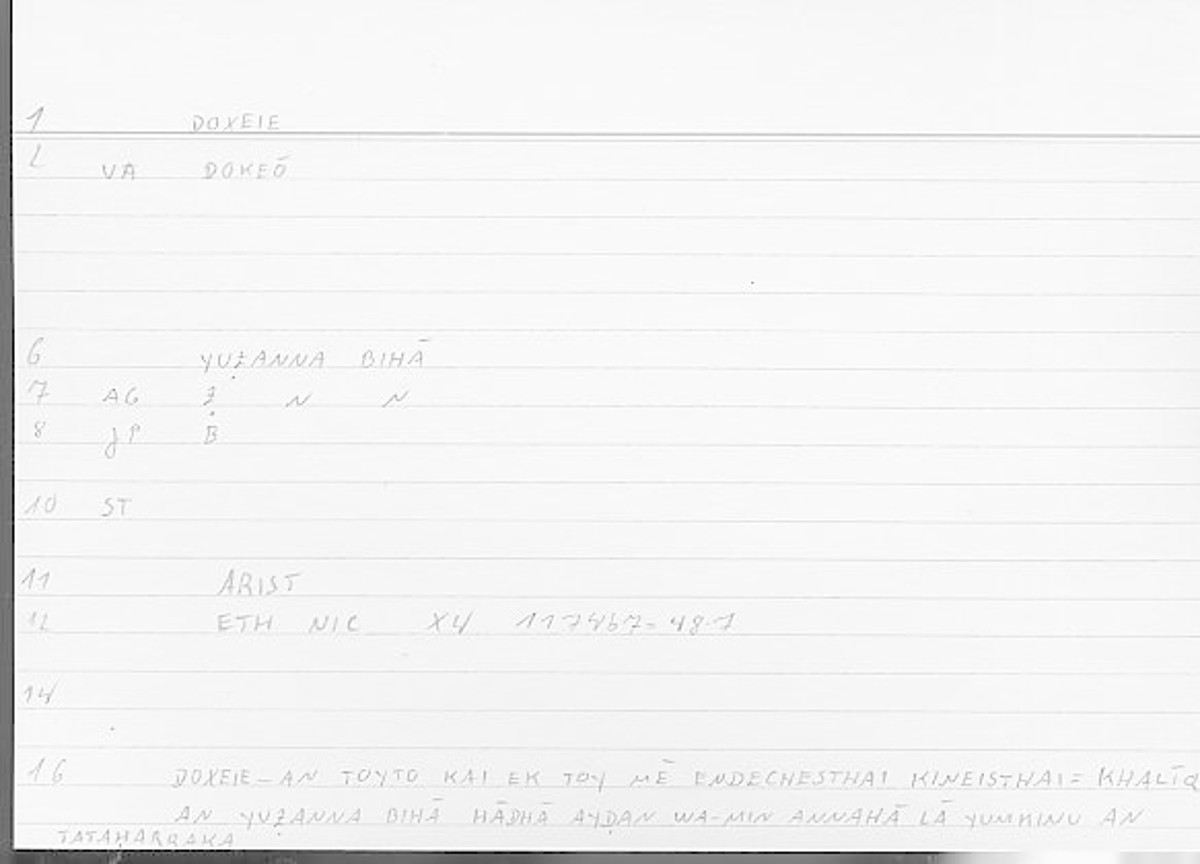 1 DOXEIE
2 VA DOKEŌ
6 YUẒANNA BIHĀ
7 AG Ẓ N N
8 JP B
10 ST
11 ARIST
12 ETH NIC X4 1174b7-48.7
14
16 DOXEIE-AN TOYTO KAI EK TOY MĒ ENDECHESTHAI KINEISTHAI = KHALĪQ
AN YUẒANNA BIHĀ HĀDHĀ AYḌAN WA-MIN ANNAHĀ LĀ YUMKINU AN
TATAḤARRAKA